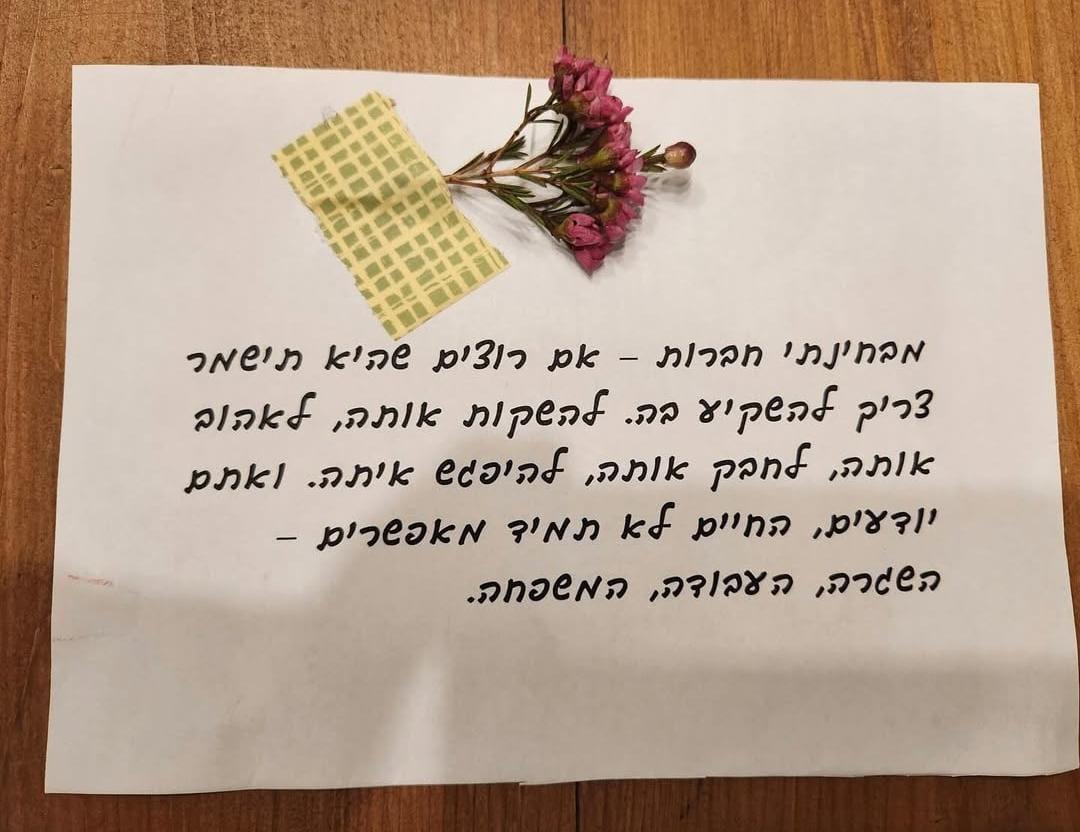 מבחינתי חברות – אם רוצים שהיא תישמר
צריך להשקיע בה. להשקות אותה, לאהוב
אותה, לחבק אותה, להיפגש איתה. ואתם
יודעים, החיים לא תמיד מאפשרים –
השגרה, העבודה, המשפחה.